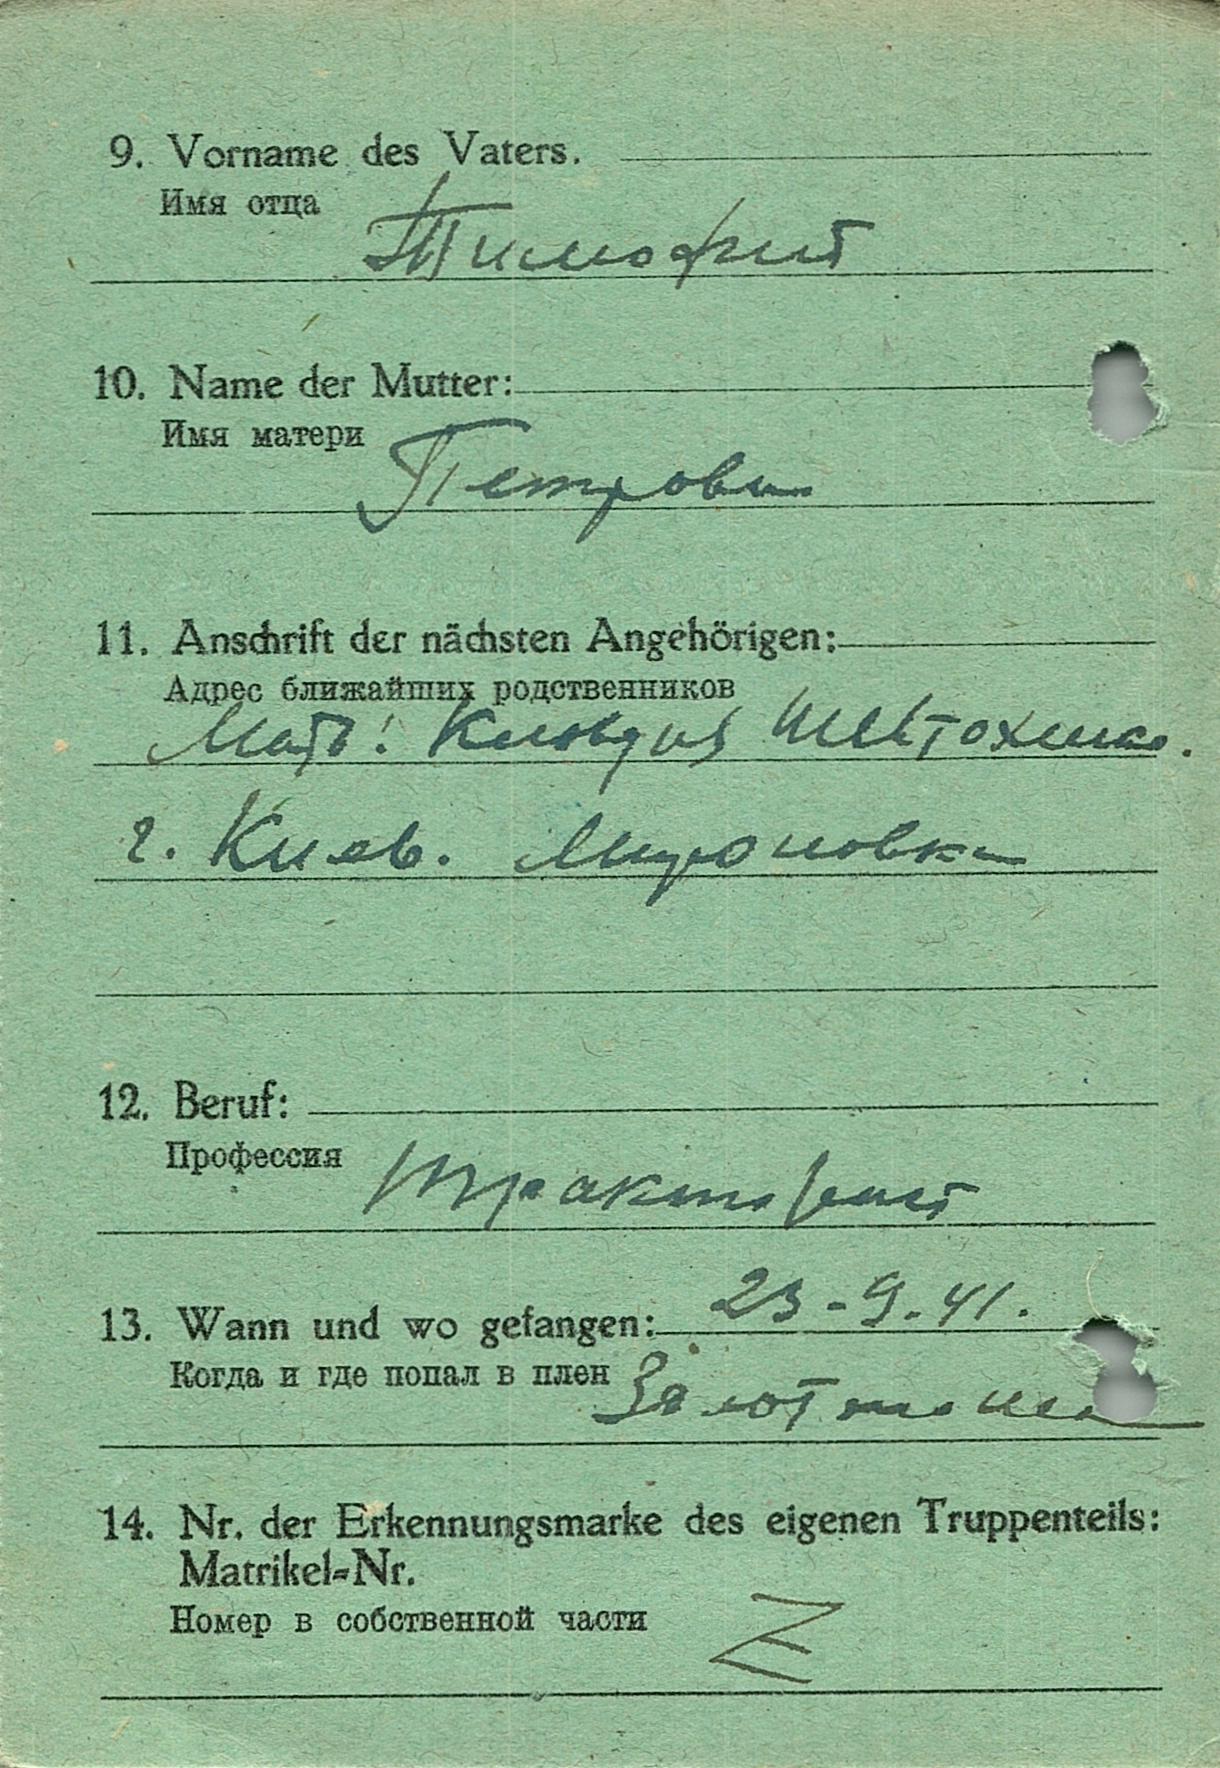 9. Vorname des Vaters.
Имя отца
Тимофит
10. Name der Mutter:
Имя матери
Петровна
11. Anschrift der nächsten Angehörigen:
Адрес ближайших родственников
Мать:
г. Киев. Мироновка
12. Beruf:
Профессия
тракторист
13. Wann und wo gefangen: 23-9.41.
Когда и где попал в плен
14. Nr. der Erkennungsmarke des eigenen Truppenteils:
Matrikel-Nr.
Номер в собственной части